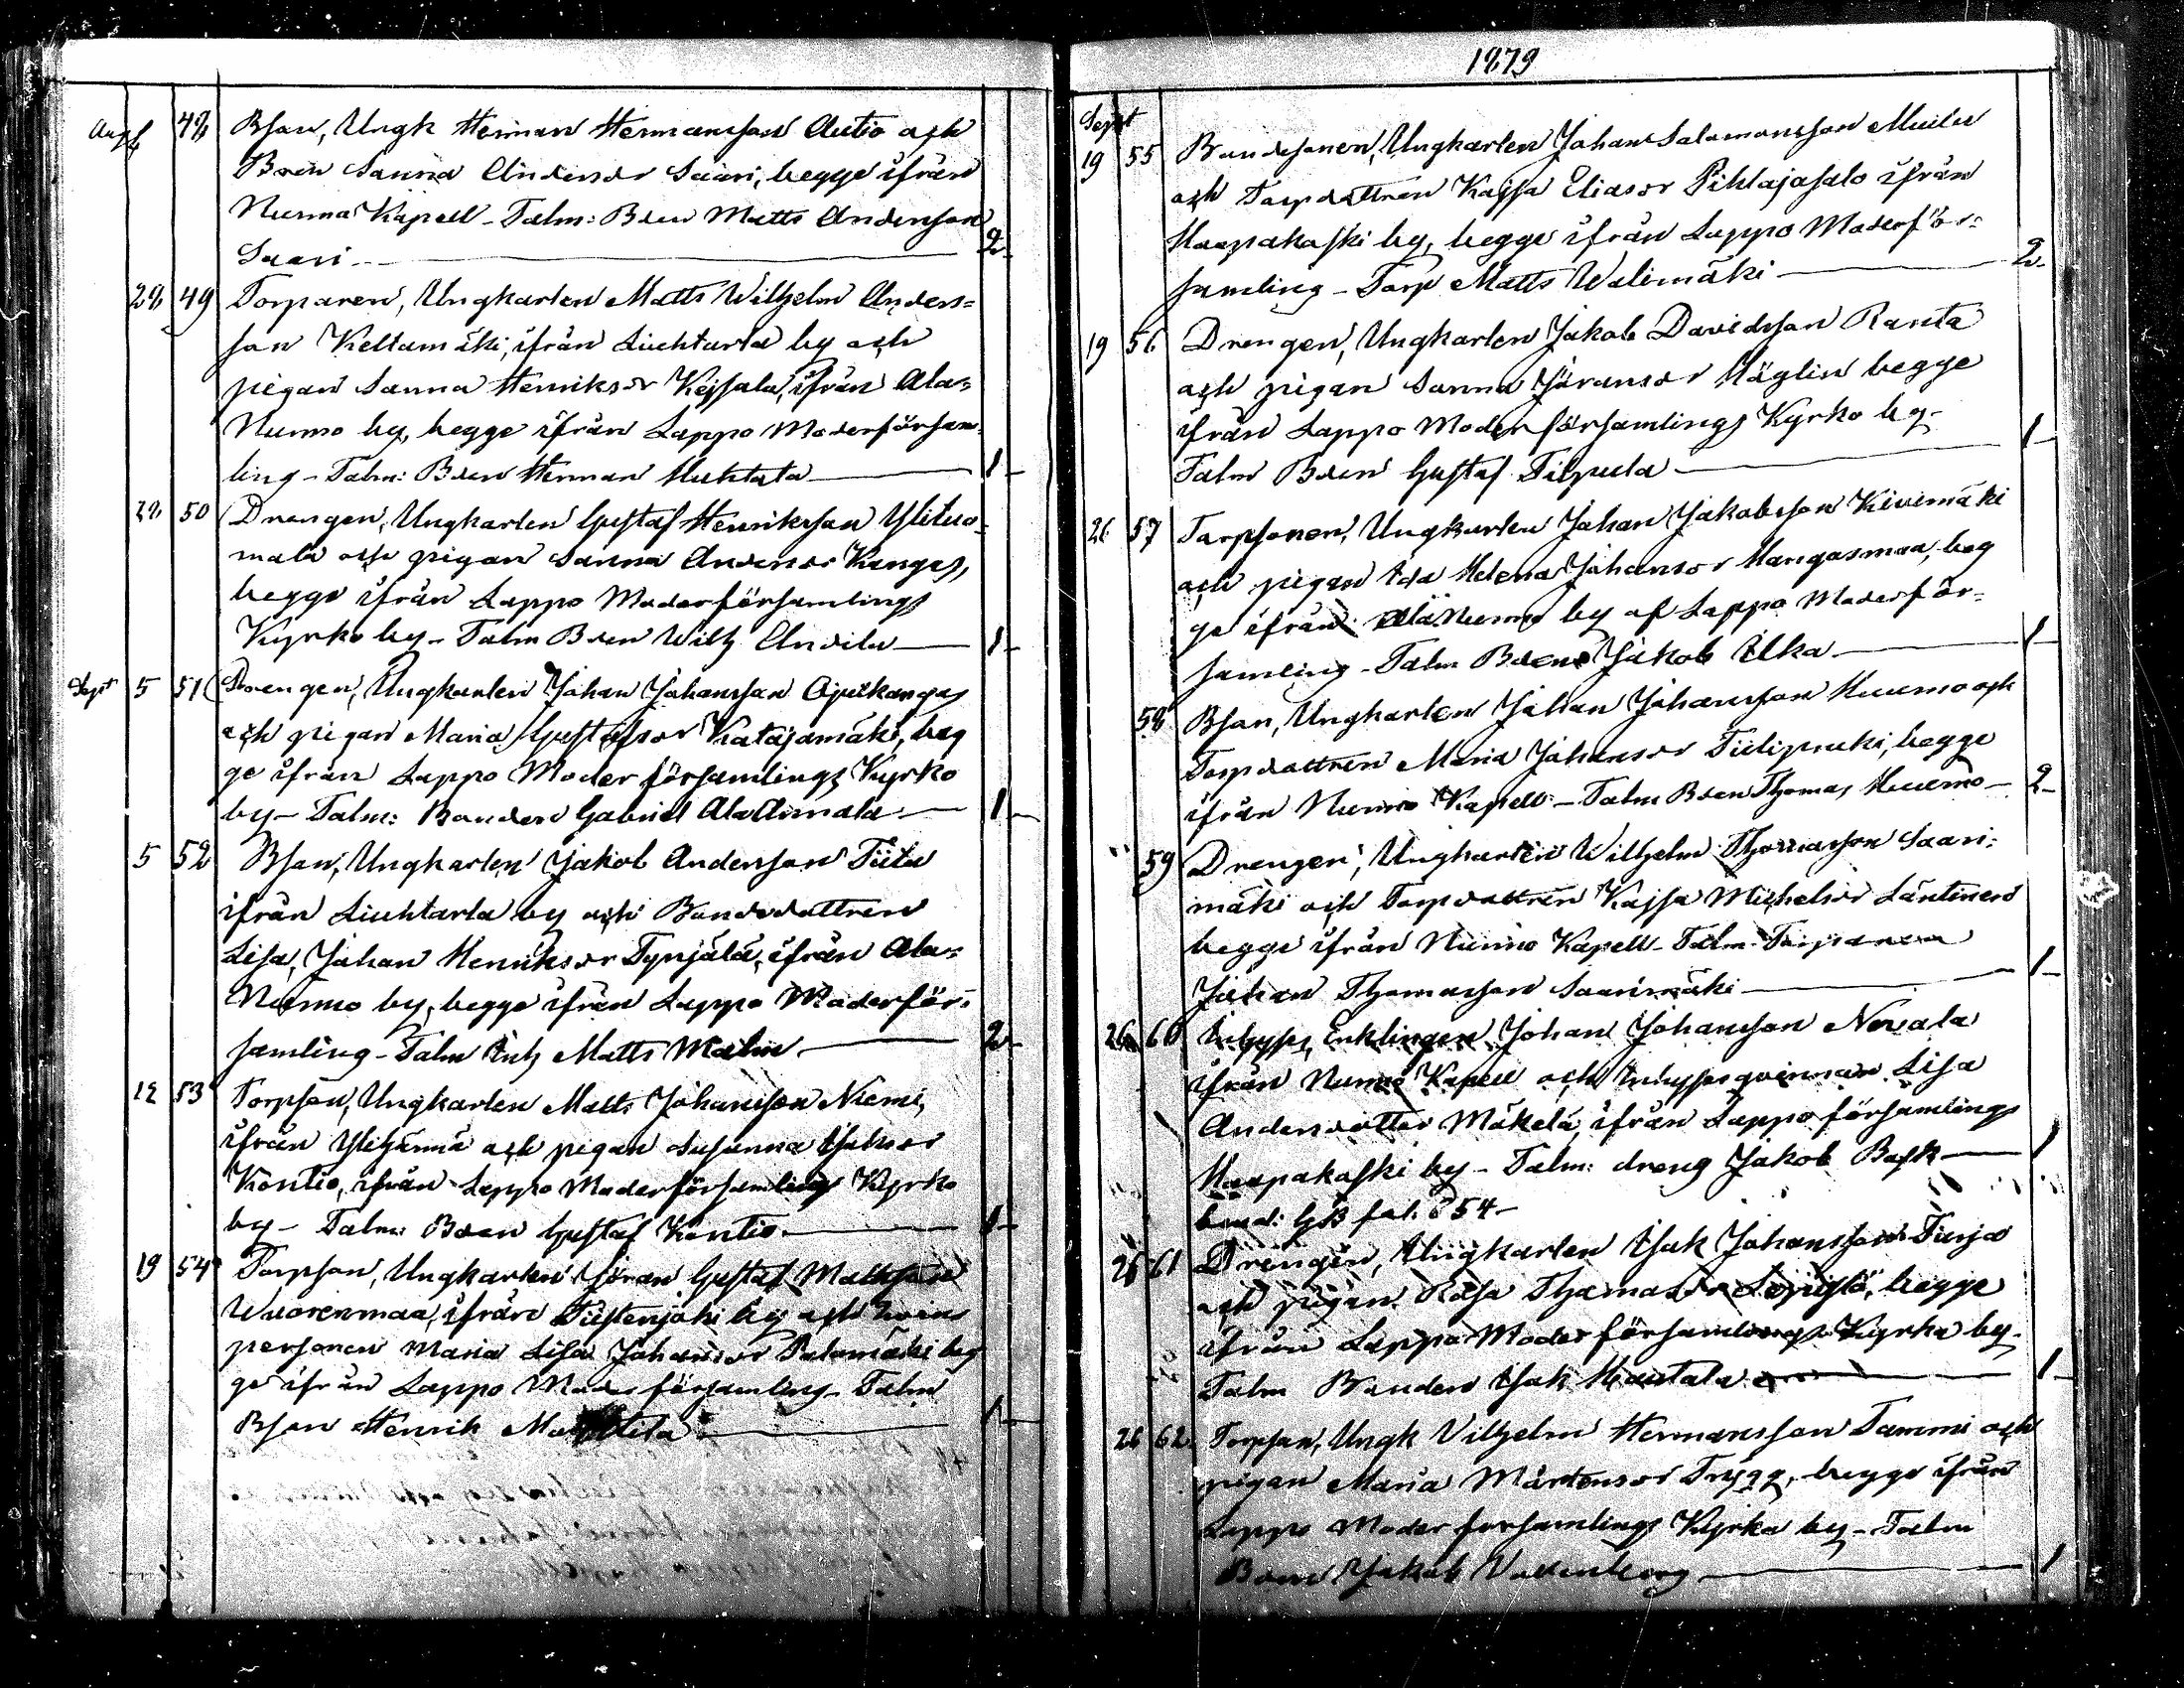 Aug 48 Bson, Ungk Herman Hermansson Autio och
Bden Sanna Andersdr Saari, begge ifrån
Nurmo Kapell - Talm: Bden Matts Andersson
Saari - 2 -
28 49 Torparen, Ungkarlen Matts Wilhelm Anders=
son Keltamäki, ifrån Liuhtarla by och
pigan Sanna Henriksdr ifrån Ala=
Nurmo by, begge ifrån Lappo Moderförsam-
ling - Talm: Bden Herman Huhtala - 1 -
28 50 Drengen, Ungkarlen Gustaf Henriksson Ylituo-
mala och pigan Sanna Andersdr Kangas,
begge ifrån Lappo Moderförsamlings
Kyrko by - Talm Bden Wilh Andila - 1 -
Sept 5 51 Drengen, Ungkarlen Johan Johansson
och pigan Maria Gustafsdr Katajamäki, beg
ge ifrån Lappo Moderförsamlings Kyrko
by - Talm: Bonden Gabriel - 1 -
5 52 Bson, Ungkarlen Jakob Andersson Tiitu
ifrån Liuhtarla by och Bondedottren
Lisa, Johan Henriksdr Tynjälä, ifrån Ala=
Nurmo by, begge ifrån Lappo Moderför=
samling - Talm Inh Matts Malm - 2 -
12 53 Torpson, Ungkarlen Matts Johansson Niemi,
ifrån Ylihärmä och pigan Susanna Isaksdr
Kontio, ifrån Lappo Moderförsamlings Kyrko
by - Talm: Bden Gustaf Kontio - 1 -
19 54 Torpson, Ungkarlen Jöran Gustaf Mattsson
Wuorenmaa, ifrån Tiistenjoki by och qvins
personen Maria Lisa Johansdr Palomäki beg
ge ifrån Lappo Moderförsamling - Talm
Bson Henrik - 1 -
1879
Sept
19 55 Bondesonen, Ungkarlen Johan Salomonsson
och Torpdottren Kajsa Eliasdr Pihlajasalo ifrån
Haapakoski by, begge ifrån Lappo Moderför=
samling - Torp Matts Walimäki - 2 -
19 56 Drengen, Ungkarlen Jakob Davidsson Ranta
och pigan Sanna Jöransdr Häglin begge
ifrån Lappo Moderförsamlings Kyrko by -
Talm Bden Gustaf Tilpula - 1 -
26 57 Torpsonen, Ungkarlen Johan Jakobsson Kivimäki
och pigan Ida Helena Johansdr Hangasmaa, beg
ge ifrån AlaNurmo by af Lappo Moderför-
samling - Talm Bden Jakob Ilka - 1 -
" 58 Bson, Ungkarlen Johan Johansson Huumo och
Torpdottren Maria Johansdr begge
ifrån Nurmo Kapell - Talm Bden Thomas Huumo - 2 -
" 59 Drengen, Ungkarlen Wilhelm Thomasson Saari=
mäki och Torpdottren Kajsa Michelsdr Läntinen
begge ifrån Nurmo Kapell - Talm Torparen
Johan Thomasson Saarimäki - 1 -
26 60 Inhyses Enklingen Johan Johansson Nevala
ifrån Nurmo Kapell och Inhysesqvinnan Lisa
Andersdotter Mäkelä, ifrån Lappo församlings
Haapakoski by - Talm: dreng Jakob Bask - 1
KB fol. 854 -
26 61 Drengen, Ungkarlen Isak Johansson
och pigan Rosa Thomasdr begge
ifrån Lappo Moderförsamlings Kyrko by -
Talm Bonden Isak Hautala - 1 -
26 62 Torpson, Ungk Vilhelm Hermansson Tammi och
pigan Maria Mårtensdr Trygg, begge ifrån
Lappo Moderförsamlings Kyrko by - Talm
Bden Jakob - 1